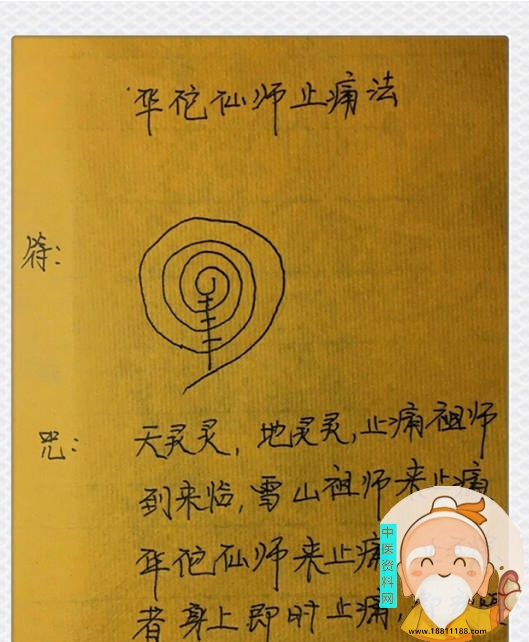 华佗仙师止痛法
符:
咒: 天灵灵,地灵灵,止痛祖师
到来临,雪山祖师来止痛
华佗仙师来止痛
者身上即时止痛,
中医资料网
www.18811188.com